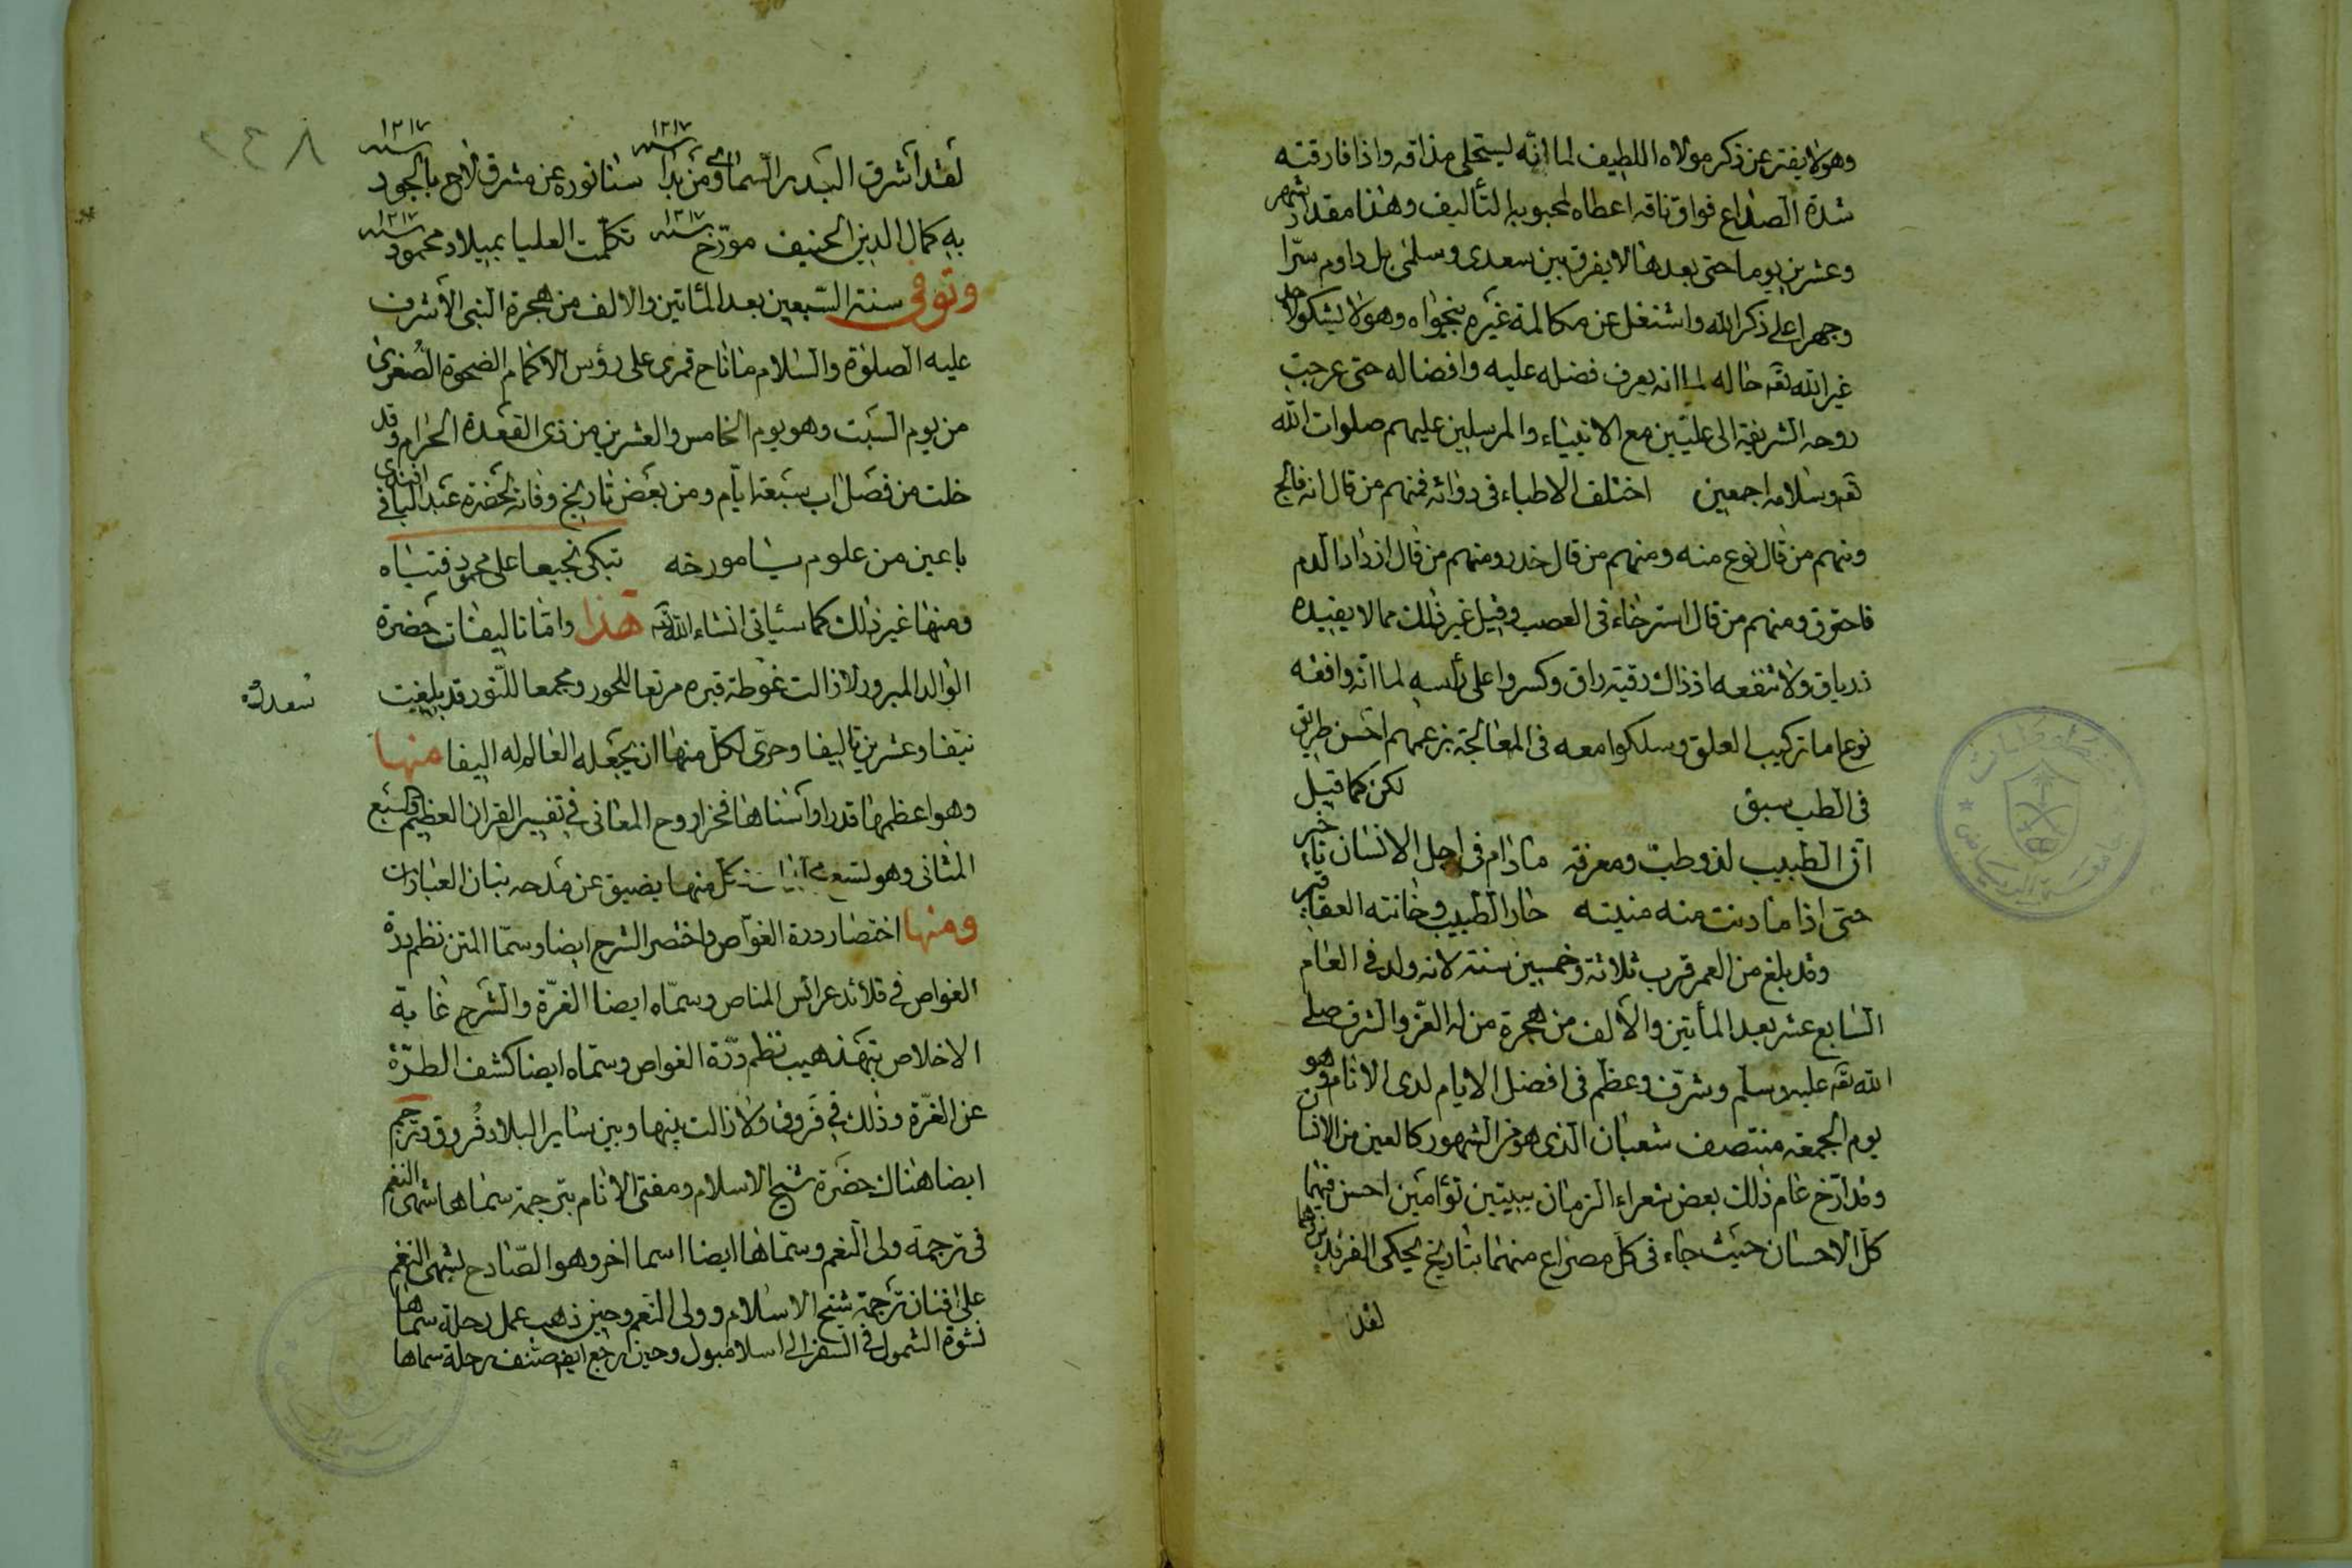 وهو لا يفتر عن ذكر مولاه اللطيف لما انه ليستحلى مذاقه واذا فارقته
شدة الصداع فواق ناقه اعطاه لمحبوبه التأليف وهذا مقدار شهر
وعشرين يوما حتى بعدها لا يفرق بين سعدى وسلمى بل داوم سرّا
وجهرا على ذكر الله واشتغل عن مكالمة غيره بنجواه وهو لا يشكو لاحد
غير الله تعه حاله لما انه يعرف فضله عليه وافضاله حتى عرجت
روحه الشريفة الى عليّين مع الانبياء والمرسلين عليهم صلوات الله
تعه وسلامه اجمعين اختلف الاطباء فى دوائه فمنهم من قال انه فالج
ومنهم من قال نوع منه ومنهم من قال خدر ومنهم من قال ازداد الدم
فاحترق ومنهم من قال استرخاء فى العصب وقيل غير ذلك مما لا يفيده
درياق ولا تنفعه اذ ذاك رقية راق وكسروا على رأسه لما انه وافقه
نوعا ما تركيب العلق وسلكوا معه فى المعالجة بزعمهم احسن طريق
فى الطب سبق لكن كما قيل
انّ الطبيب لذو طبّ ومعرفة مادام فى اجل الانسان تاخير
حتى اذا ما دنت منه منيته حار الطبيب وخانته العقاقير
وقد بلغ من العمر قرب ثلاثة وخمسين سنة لانه ولد فى العام
السابع عشر بعد المأتين والألف من هجرة من له العزّ والشرف صلى
الله تعه عليه وسلم وشرّف وعظّم فى افضل الايام لدى الانام وهو
يوم الجمعة منتصف شعبان الذى هو من الشهور كالعين من الانسان
وقد ارّخ عام ذلك بعض شعراء الزمان ببيتين توأمين احسن فيهما
كل الاحسان حيث جاء فى كل مصراع منهما بتاريخ يحكى الفرقدين وهما
لقد
٢٤٨
لقد اشرق البدر السماوى ومن بدا سنة ١٢١٧ سنا نوره عن مشرق لاح بالجود سنة ١٢١٧
به كمال الدين الحنيف مورّخ سنة ١٢١٧ تكلّمت العليا بميلاد محمود سنة ١٢١٧
وتوفى سنة السّبعين بعد المأتين والالف من هجرة النبى الاشرف
عليه الصلوة والسلام ما ناح قمرى على رؤس الاكمام الضحوة الصغرى
من يوم السبت وهو يوم الخامس والعشرين من ذى القعدة الحرام وقد
خلت من فصل اب سبعة ايّام ومن بعض تاريخ وفاته لحضرة عبد الباقى افندى
يا عين من علوم يا مورخه تبكى نجيعا على محمود فتياه
ومنها غير ذلك كما سيأتى انشاء الله تعه هذا واما تاليفات حضرة
الوالد المبرور لا زالت غوطة قبره مرتعا للحور ومجمعا للنّور قد بلغت
نيّفا وعشرين تاليفا وحرىّ لكل منها ان يجعله العالم له اليفا منها
وهو اعظمها قدرا واسناها فخرا روح المعانى فى تفسير القران العظيم والسبع
المثانى وهو كل منها يضيق عن مدحه بنان العبارات
ومنها اختصار درة الغوّاص واختصر الشرح ايضا وسمّا المتن نظم درة
الغواص فى قلائد عرائس المناص وسمّاه ايضا الغرّة والشرح غاية
الاخلاص بتهذيب نظم درّة الغواص وسمّاه ايضا كشف الطرّة
عن الغرّة وذلك فى فروق ولا زالت بينها وبين ساير البلاد فُروق وترجم
ايضا هناك حضرة شيخ الاسلام ومفتى الانام بترجمة سماها شهى النغم
فى ترجمة ولى النعم وسمّاها ايضا اسما اخر وهو الصّادح بشهى النغم
على افنان ترجمة شيخ الاسلام وولى النعم وحين ذهب عمل رحلة سماها
نشوة الشمول فى السفر الى اسلامبول وحين ارجع ايضا صنف رحلة سماها